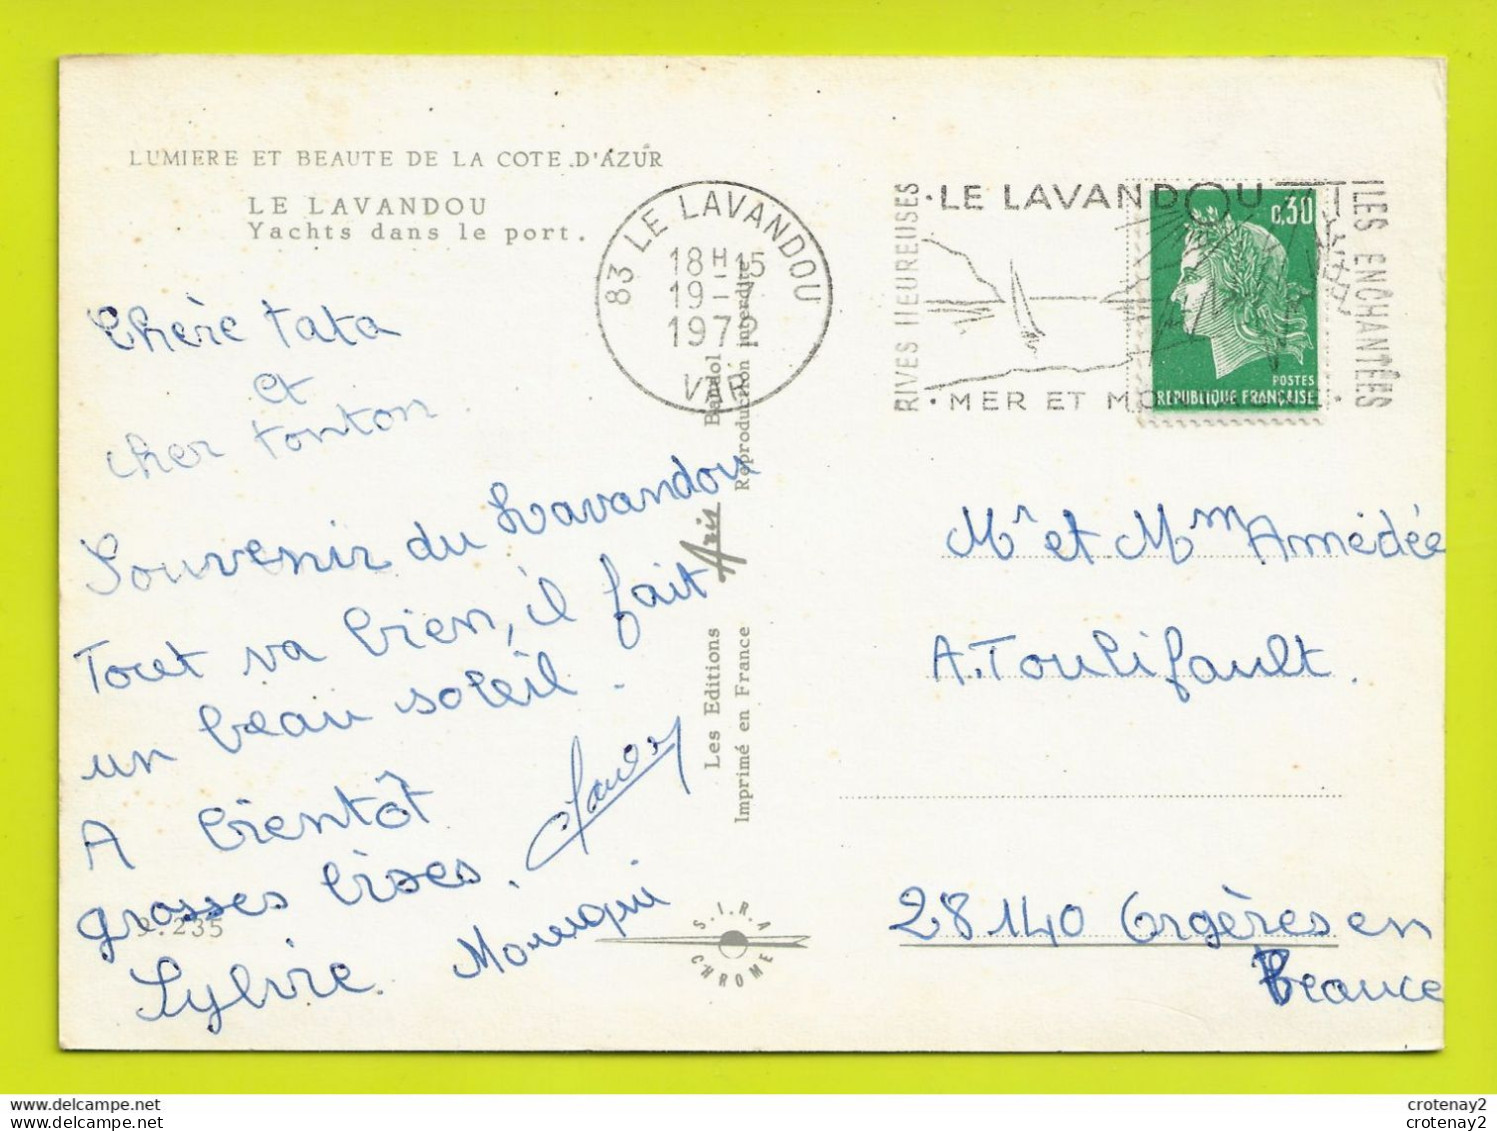 LUMIERE ET BEAUTE DE LA COTE D'AZUR
LE LAVANDOU
Yachts dans le port.
Chère tata
et
cher tonton
Souvenir du Lavandou
Tout va bien, il fait
un beau soleil.
A bientôt
grosses bises.
Sylvie
9.235
83 LE LAVANDOU
18H-15
1972
VAR
Les Editions Aris Bandol
Imprimé en France Reproduction interdite
S.I.R.A
CHROME
RIVES HEUREUSES
·LE LAVANDOU
·MER ET
ILES ENCHANTÉES
0.30
POSTES
REPUBLIQUE FRANÇAISE
Mr et Mm Amédée
A. Toulifault.
28140 Orgères en
Beauce
crotenay2
crotenay2
crotenay2
crotenay2